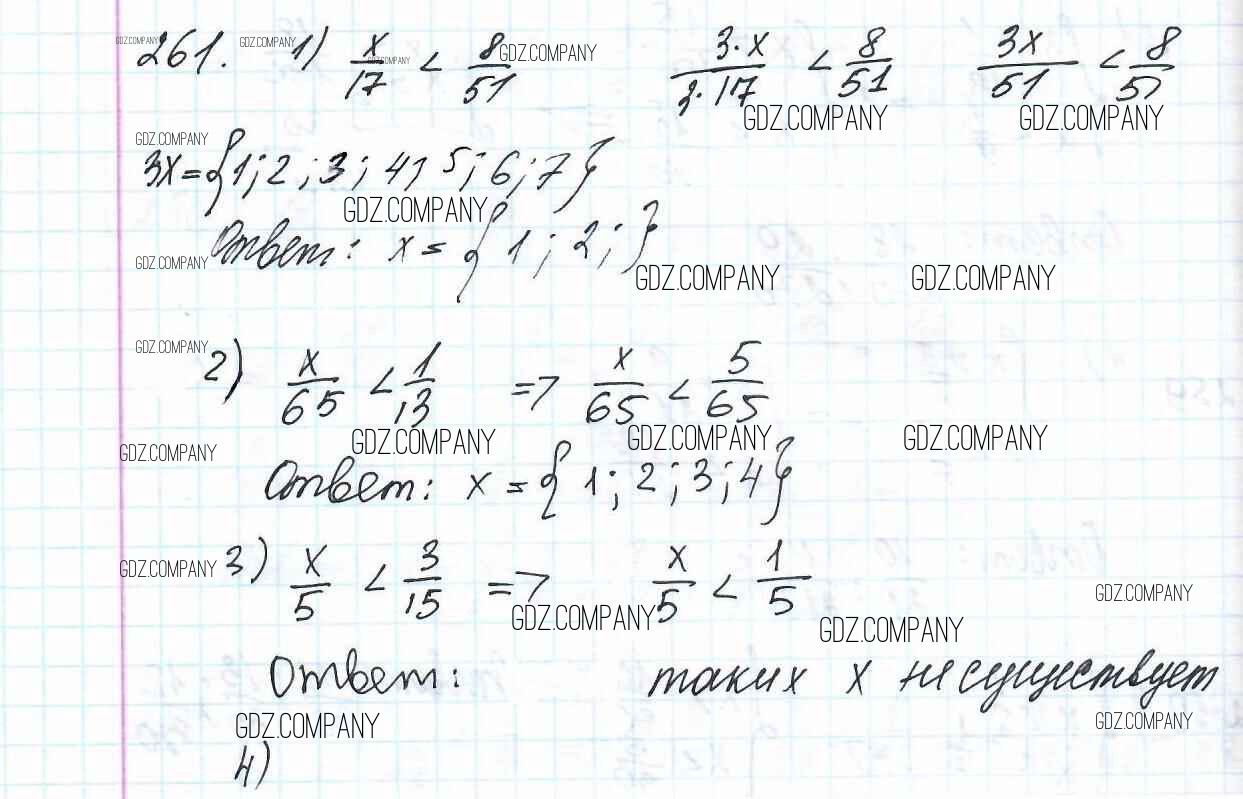 261. 1) x/17 < 8/51 3·x/3·17 < 8/51 3x/51 < 8/51
3x={1;2;3;4;5;6;7}
Ответ: x={1;2;}
2) x/65 < 1/13 => x/65 < 5/65
Ответ: x={1;2;3;4}
3) x/5 < 3/15 => x/5 < 1/5
Ответ: таких x не существует
4)
GDZ.COMPANY GDZ.COMPANY GDZ.COMPANY GDZ.COMPANY
GDZ.COMPANY GDZ.COMPANY
GDZ.COMPANY
GDZ.COMPANY
GDZ.COMPANY GDZ.COMPANY GDZ.COMPANY
GDZ.COMPANY
GDZ.COMPANY GDZ.COMPANY GDZ.COMPANY GDZ.COMPANY
GDZ.COMPANY GDZ.COMPANY
GDZ.COMPANY GDZ.COMPANY
GDZ.COMPANY GDZ.COMPANY